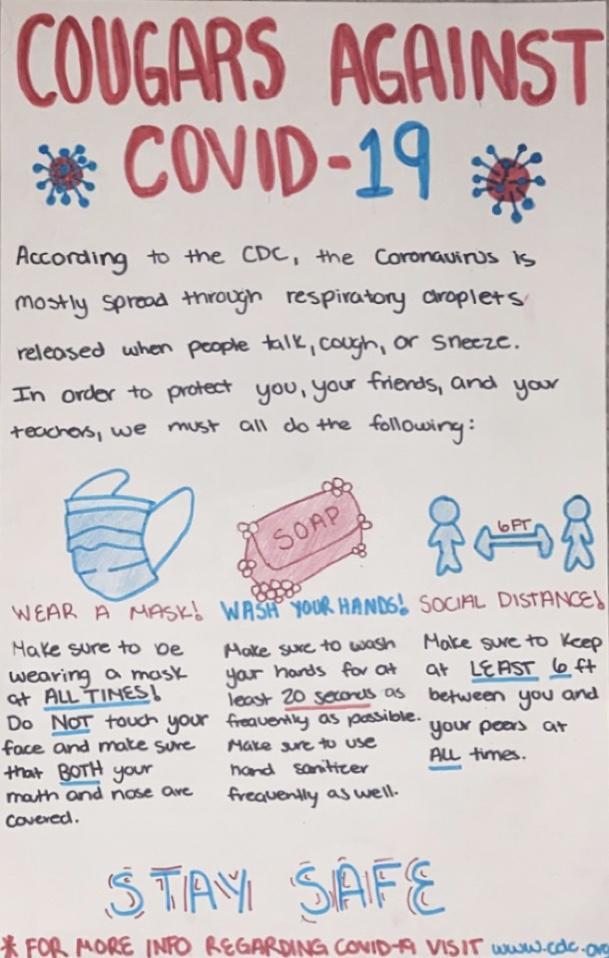 COUGARS AGAINST
COVID-19
According to the CDC, the Coronavirus is
mostly spread through respiratory droplets
released when people talk, cough, or sneeze.
In order to protect you, your friends, and your
teachers, we must all do the following:
SOAP
6FT
WEAR A MASK!
Make sure to be
wearing a mask
at ALL TIMES!
Do NOT touch your
face and make sure
that BOTH your
mouth and nose are
covered.
WASH YOUR HANDS!
Make sure to wash
your hands for at
least 20 seconds as
frequently as possible.
Make sure to use
hand sanitizer
frequently as well.
SOCIAL DISTANCE!
Make sure to keep
at LEAST 6 ft
between you and
your peers at
ALL times.
STAY SAFE
* FOR MORE INFO REGARDING COVID-19 VISIT www.cdc.org